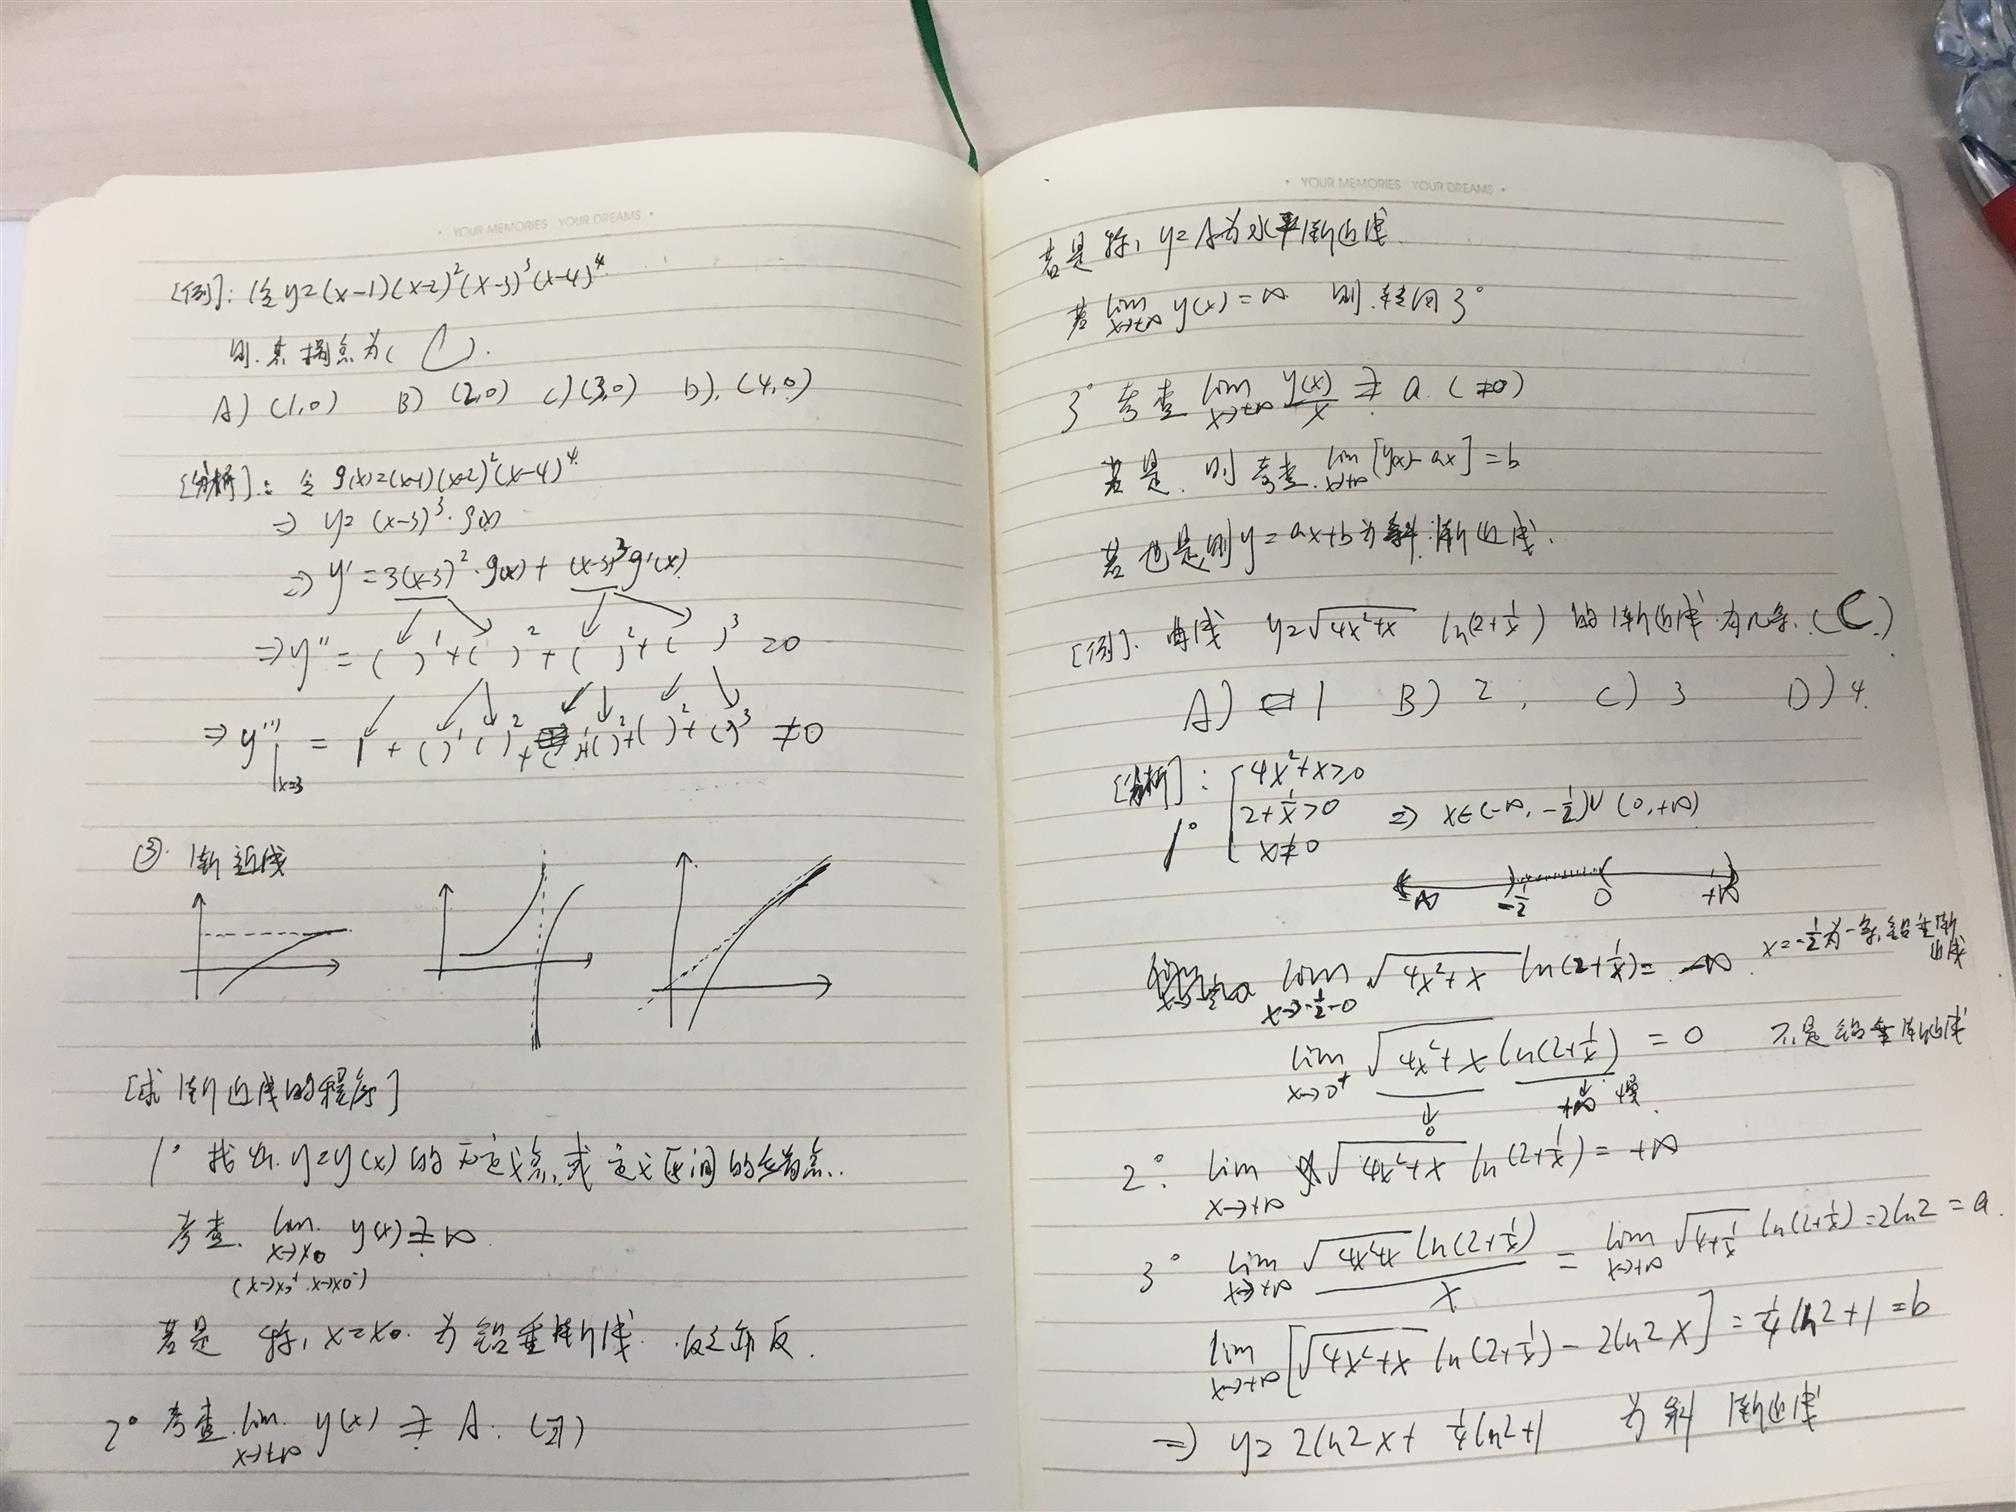 YOUR MEMORIES YOUR DREAMS
[例]: 令 y=(x-1)(x-2)²(x-3)³(x-4)⁴
则其拐点为( C ).
A) (1,0) B) (2,0) C) (3,0) D), (4,0)
[分析]: 令 g(x)=(x-1)(x-2)²(x-4)⁴
⇒ y= (x-3)³·g(x)
⇒ y' = 3(x-3)²·g(x) + (x-3)³g'(x)
⇒ y'' = ( )¹+( )²+( )²+( )³ =0
⇒ y'''|x=3 = 1 + ( )¹ ( )² + ( )¹+( )²+( )²+( )³ ≠0
③. 渐近线
[求渐近线的程序]
1° 找出 y=y(x)的无定义点,或定义区间的端点.
考查 lim x→x₀ y(x) ?= ∞
(x→x₀⁺, x→x₀⁻)
若是 称, x=x₀ 为铅垂渐线. 反之亦反.
2° 考查 lim x→±∞ y(x) ?= A. (∃)
YOUR MEMORIES YOUR DREAMS
若是称, y=A为水平渐近线.
若 lim x→±∞ y(x)=∞ 则转向3°
3° 考查 lim x→±∞ y(x)/x ?= a. (≠0)
若是. 则考查. lim x→±∞ [y(x)-ax]=b
若也是则y=ax+b为斜渐近线.
[例]. 曲线 y=√(4x²+x) ln(2+1/x) 的渐近线为几条. (C.)
A) 1 B) 2 , C) 3 D) 4.
[分析]: 4x²+x≥0
1° 2+1/x>0 ⇒ x∈(-∞, -1/2)∪(0,+∞)
x≠0
-∞ -1/2 0 +∞
lim x→-1/2-0 √(4x²+x) ln(2+1/x)= -∞. x=-1/2为一条铅垂渐近线
lim x→0⁺ √(4x²+x) ln(2+1/x) = 0 不是铅垂渐近线
↓0 ↓+∞ 慢.
2°: lim x→+∞ √(4x²+x) ln(2+1/x)= +∞
3° lim x→+∞ √(4x²+x) ln(2+1/x) / x = lim x→+∞ √(4+1/x) ln(2+1/x)=2ln2 = a.
lim x→+∞ [√(4x²+x) ln(2+1/x) - 2ln2 x] = 1/4 ln2+1 =b
⇒ y= 2ln2 x + 1/4 ln2+1 为斜渐近线